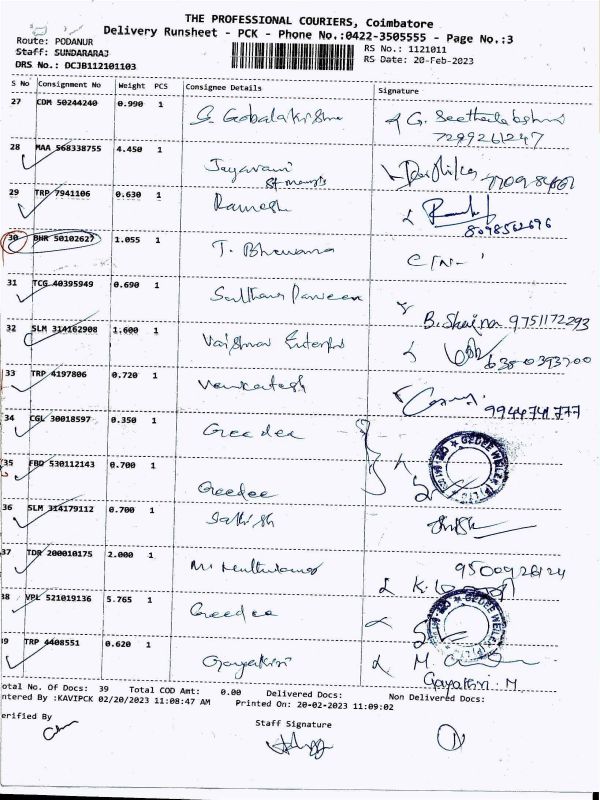 THE PROFESSIONAL COURIERS, Coimbatore
Delivery Runsheet - PCK - Phone No.:0422-3505555 - Page No.:3
Route: PODANUR
RS No.: 1121011
Staff: SUNDARARAJ
RS Date: 20-Feb-2023
DRS No.: DCJB112101103
S No Consignment No Weight PCS Consignee Details Signature
27 CDM 50244240 0.990 1 G. Gobalakrishna G. Seethalakshmi
7299261247
28 MAA 568338755 4.450 1 Jayarani
29 TRP 7941106 0.630 1 Ramesh
8098562696
30 BHR 50102627 1.055 1 T. Bhuvana
31 TCG 40395949 0.690 1 Sulthana Parveen
B. Shaina 9751172293
32 SLM 314162908 1.600 1 Vaishnav Enterprs
6380393200
33 TRP 4197806 0.720 1 Venkatesh
9944741777
34 CGL 30018597 0.350 1 Geedee
35 FBD 530112143 0.700 1 Geedee
GEDEE WEILER (P) LTD
36 SLM 314179112 0.700 1 Sathish
37 TDR 200010175 2.000 1 Mr Muthukumar 9500928124
38 VPL 521019136 5.765 1 Geedee
GEDEE WEILER (P) LTD
39 TRP 4408551 0.620 1 Gayathri
Gayathri. M
otal No. Of Docs: 39 Total COD Amt: 0.00 Delivered Docs: Non Delivered Docs:
ntered By :KAVIPCK 02/20/2023 11:08:47 AM Printed On: 20-02-2023 11:09:02
erified By
Staff Signature